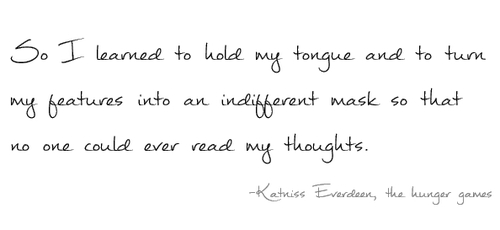 So I learned to hold my tongue and to turn
my features into an indifferent mask so that
no one could ever read my thoughts.
-Katniss Everdeen, the hunger games